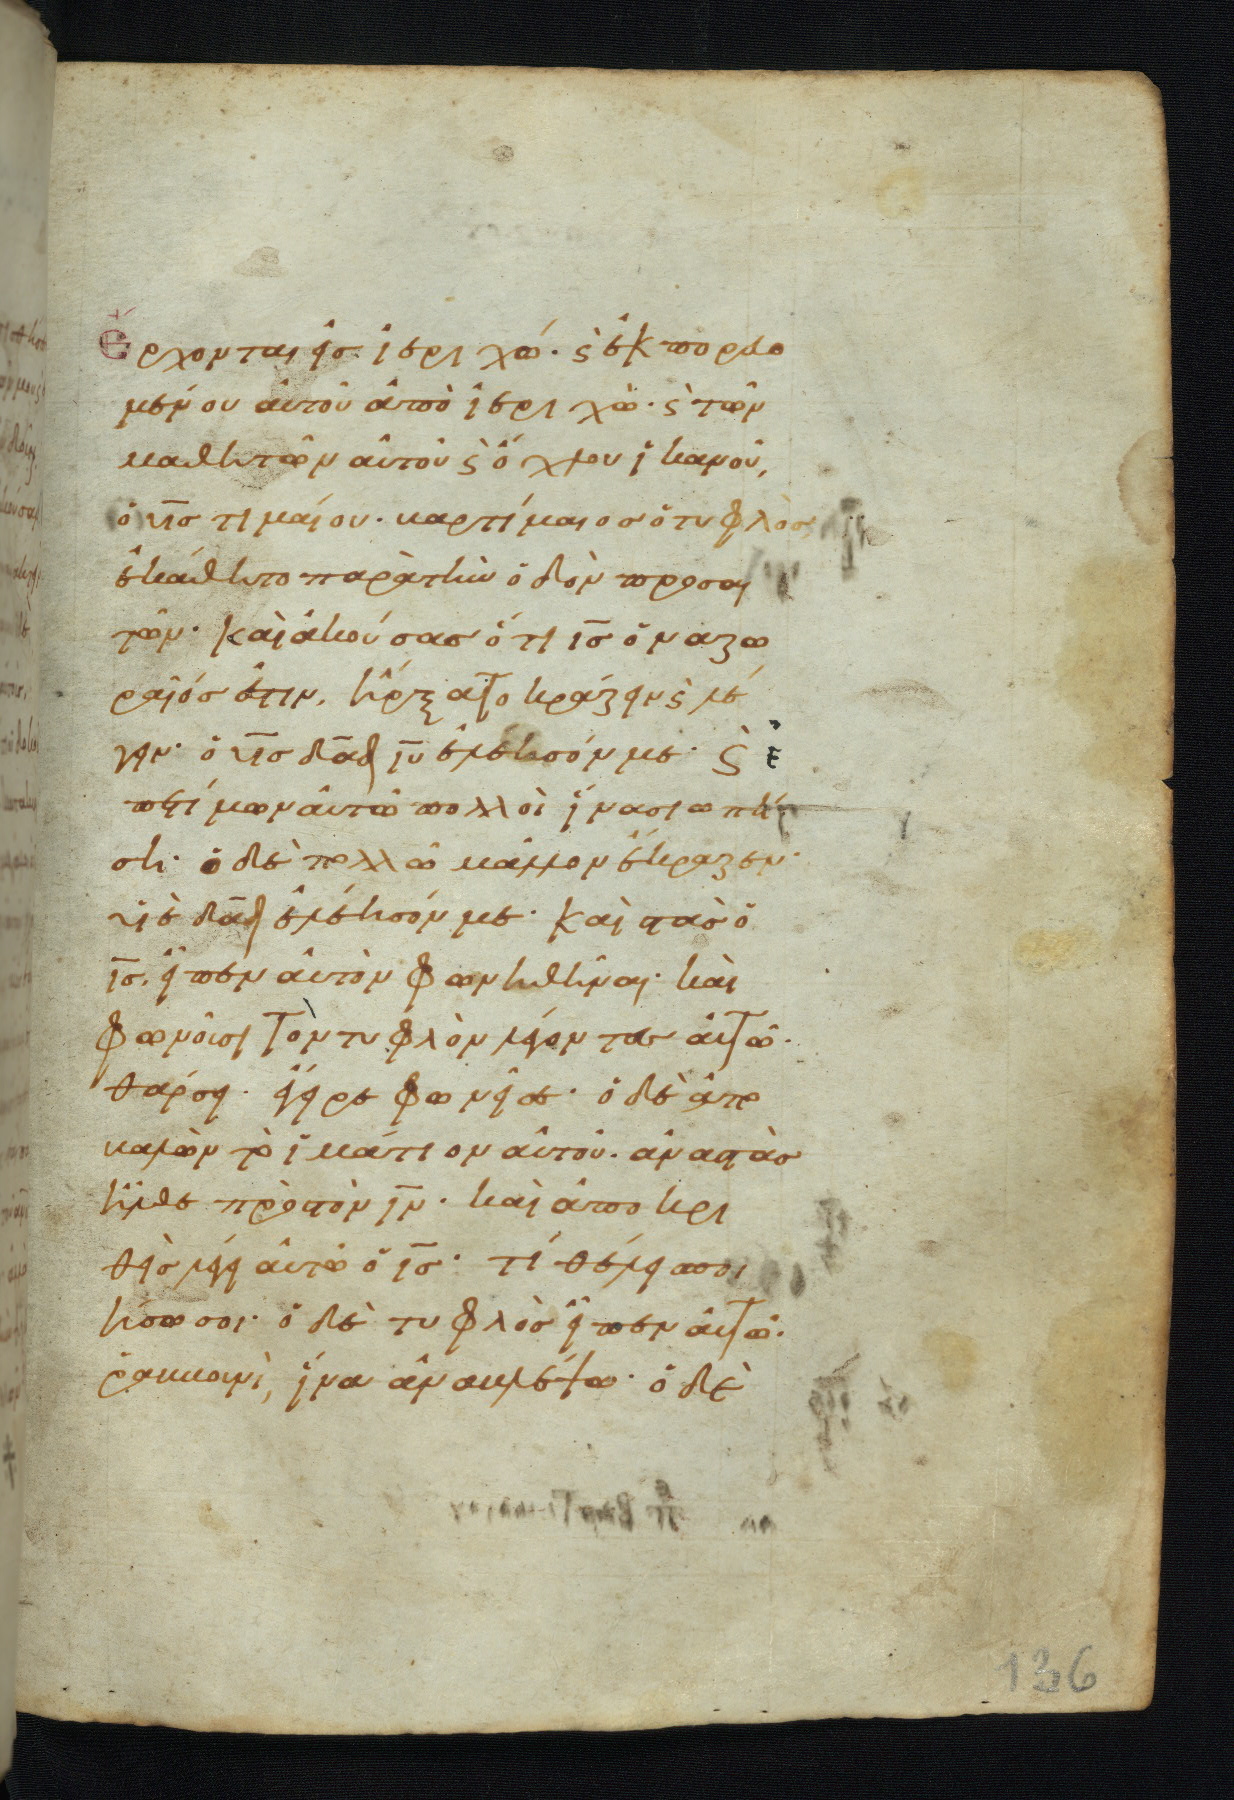 Ἔρχονται εἰσ ἱεριχώ· ϛ ἐκπορευο
μένου αὐτοῦ ἀπὸ ἱεριχὼ· ϛ τῶν
μαθητῶν αὐτοῦ ϛ ὄχλου ἱκανοῦ,
ὁ υι̅σ τιμαίου· βαρτίμαιοσ ὁ τυφλὸσ
ἐκάθητο παρὰ τὴν ὁδὸν προσαι
τῶν· καὶ ἀκούσασ ὅτι ι̅σ ὁ ναζω
ραῖόσ ἐστιν, ἤρξατο κράζειν ϛ λέ
γειν· ὁ υι̅σ δα̅δ ι̅υ ἐλέησόν με· ϛ ἐ
πετίμων αὐτῶ πολλοὶ ἵνα σιωπή
ση· ὁ δὲ πολλῶ μᾶλλον ἔκραζεν·
υἱὲ δα̅δ ἐλέησόν με· καὶ στὰσ ὁ
ι̅σ, εἶπεν αὐτὸν φωνηθῆναι· καὶ
φωνοῦσι τὸν τυφλὸν λέγοντεσ αὐτῶ·
θάρσει· ἔγειρε φωνεῖ σε· ὁ δὲ ἀπο
βαλὼν τὸ ἱμάτιον αὐτοῦ· ἀναστὰσ
ἦλθε πρὸσ τὸν ι̅ν· καὶ ἀποκρι
θεὶσ λέγει αὐτῶ ὁ ι̅σ· τί θέλεισ ποι
ήσω σοι· ὁ δὲ τυφλὸσ εἶπεν αὐτῶ·
ῥαββουνὶ, ἵνα ἀναβλέψω· ὁ δὲ
136